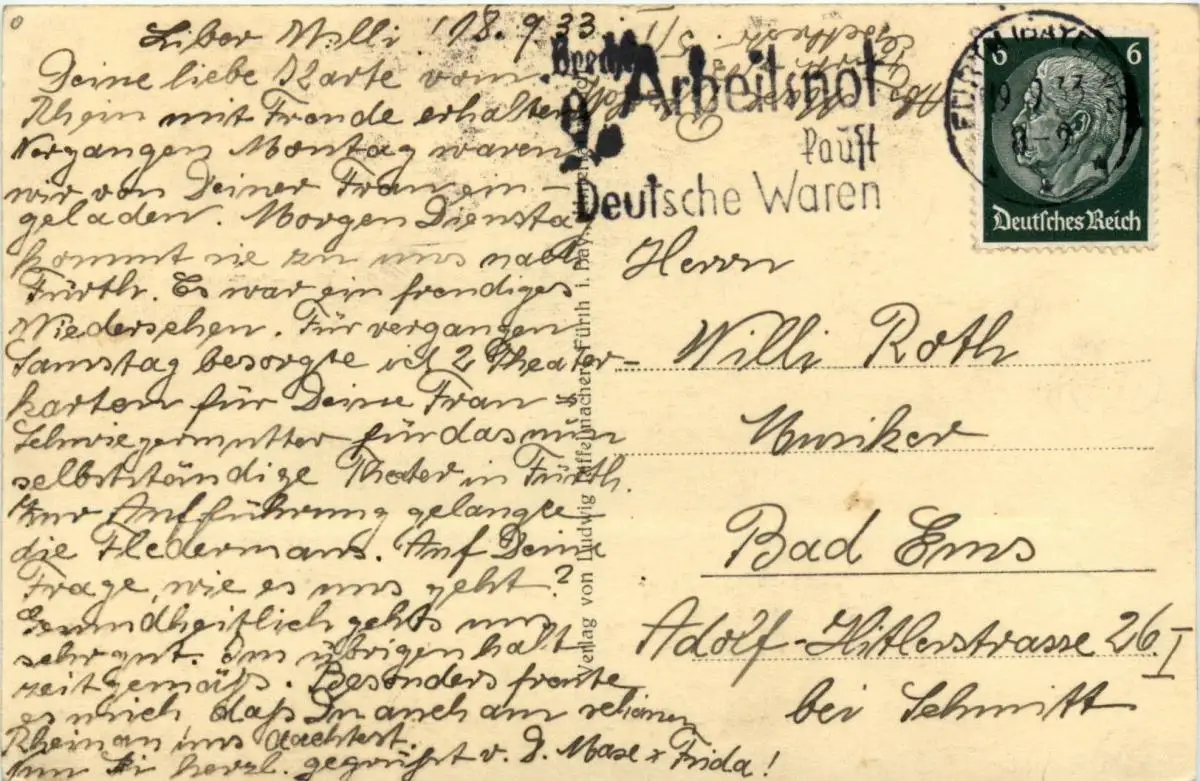 Lieber Willi! 18.9.33
Deine liebe Karte vom
Rhein mit Freude erhalten
Vergangen Montag waren
wir von Deiner Frau ein-
geladen. Morgen Diensta
kommt sie zu uns nach
Fürth. Es war ein freudiges
Wiedersehen. Für vergangen
Samstag besorgte ich 2 Theater-
karten für Deine Frau +
Schwiegermutter für das nun
selbstständige Theater in Fürth.
Zur Aufführung gelangte
die Fledermaus. Auf Deine
Frage wie es uns geht?
Gesundheitlich gehts uns
sehr gut. Im übrigen halt
zeitgemäß. Besonders freute
es mich, daß Du auch am schönen
Rhein an uns dachtest.
herzl. gegrüßt v. D. Max + Frida!
Brecht
Arbeitsnot
kauft
Deutsche Waren
19.9.33
8-9
6 6
Deutsches Reich
Verlag von Ludwig Riffelmacher, Fürth i. Bay.
Herrn
Willi Roth
Musiker
Bad Ems
Adolf-Hitlerstrasse 26 I
bei Schmitt